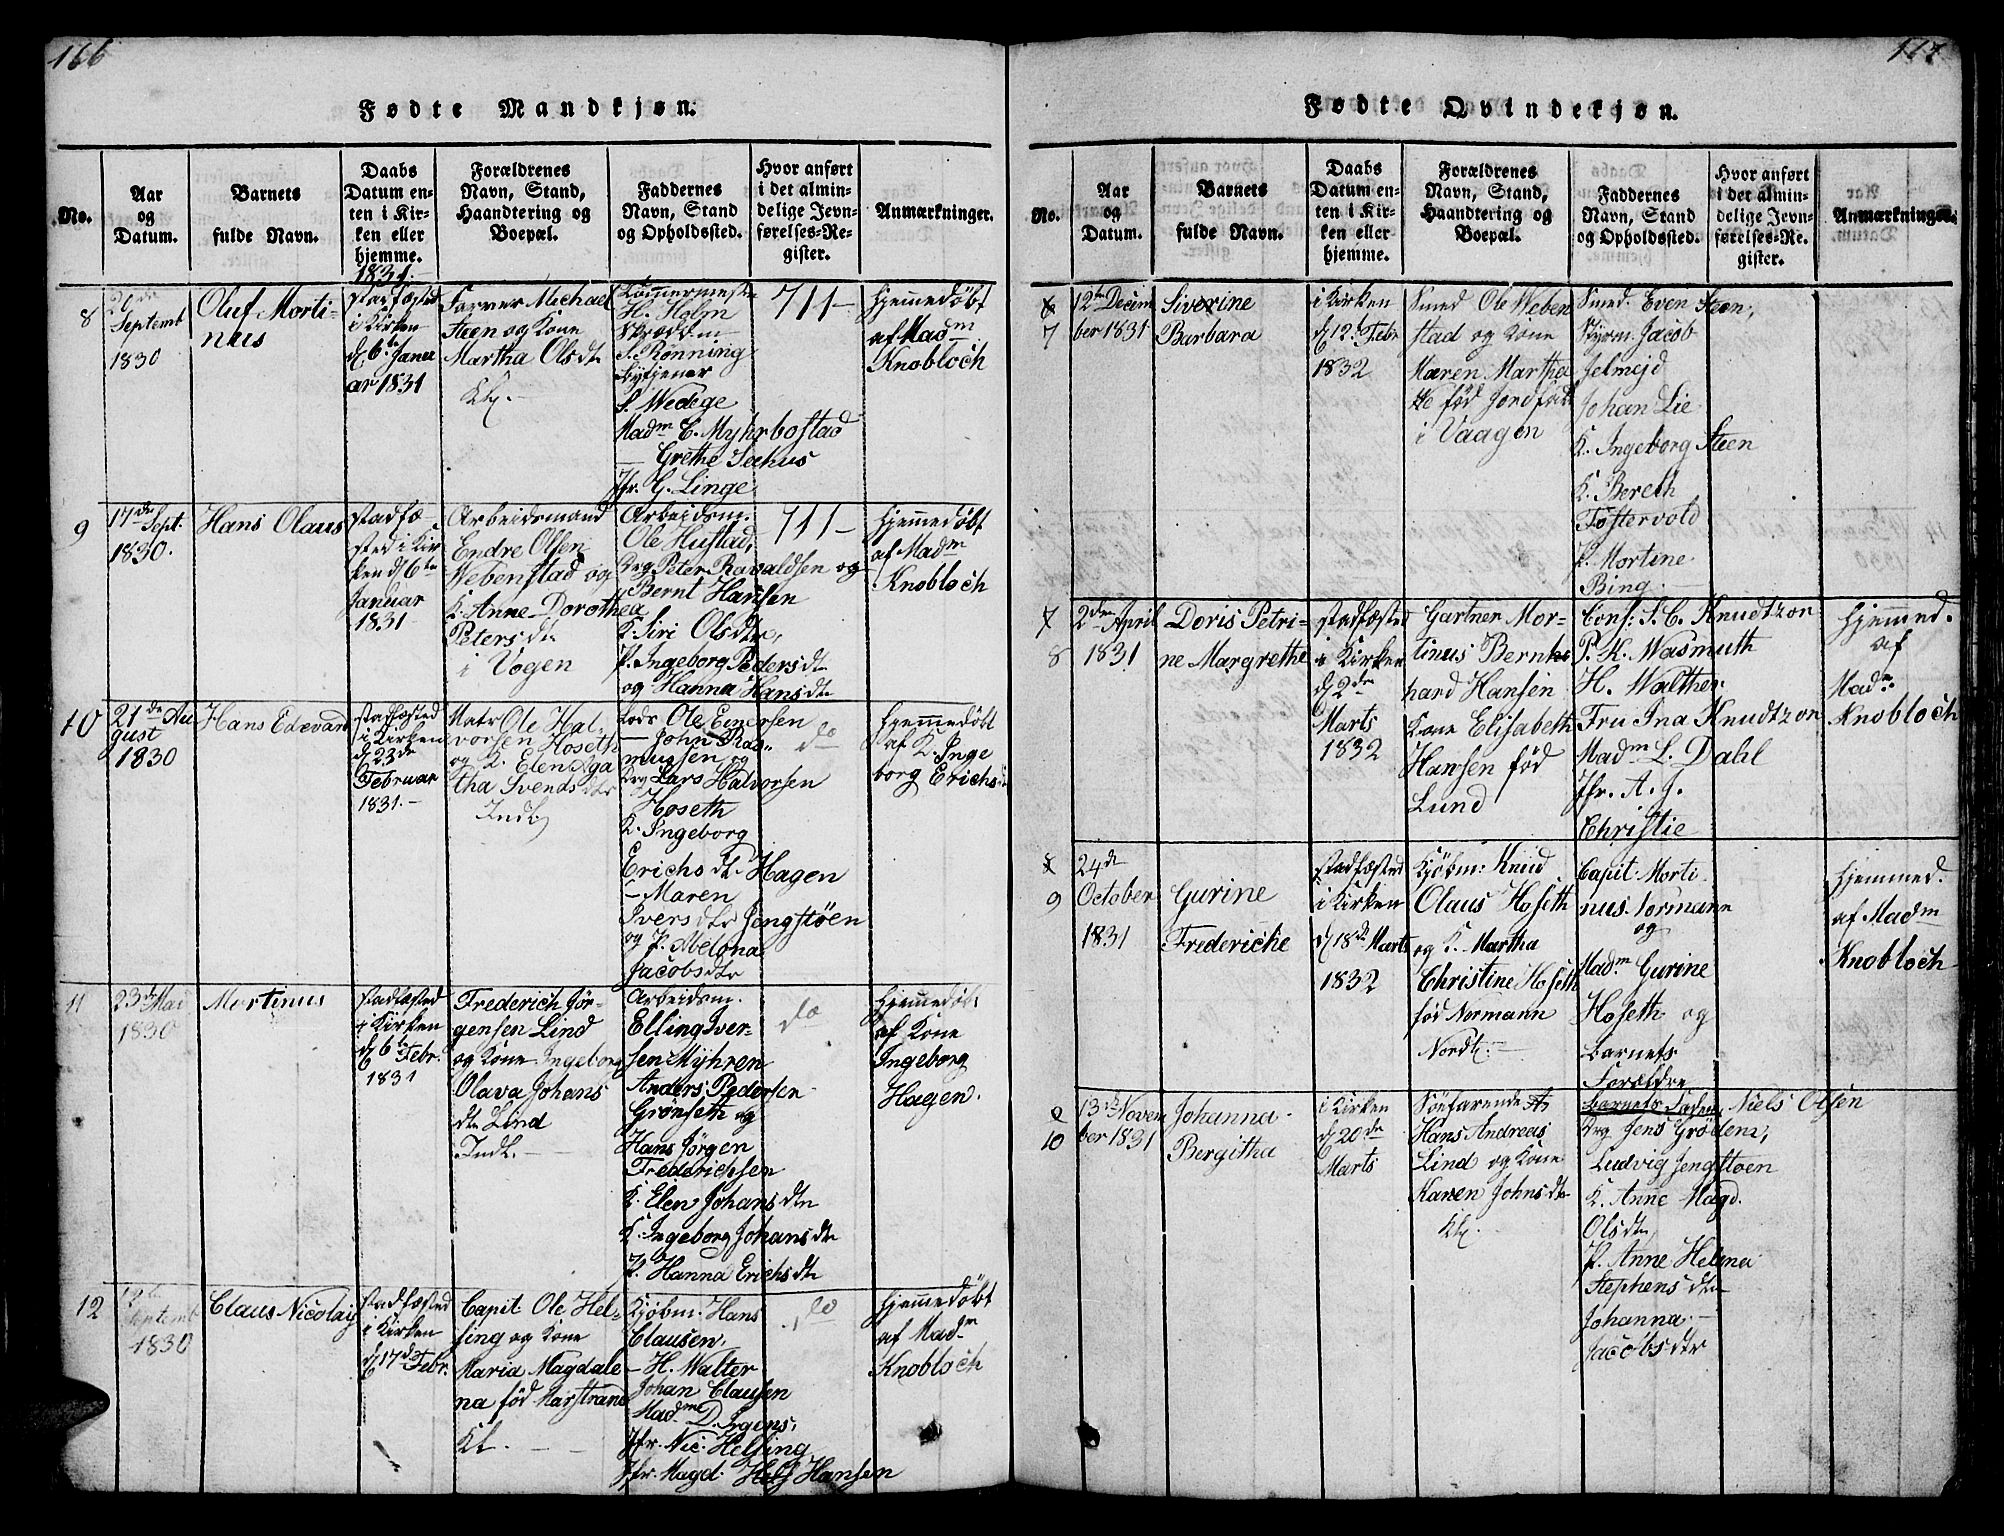 166
Fødte Mandkjøn.
No.
Aar
og
Datum.
Barnets
fulde Navn.
Daabs
Datum en-
ten i Kir-
ken eller
hjemme.
Forældrenes
Navn, Stand,
Haandtering og
Boepæl.
Faddernes
Navn, Stand
og Opholdssted.
Hvor anført
i det almin-
delige Jevn-
førelses-Re-
gister.
Anmærkninger.
1831.-
8
Septemb
1830
Oluf Morti-
nus
stadfæsted
i Kirken
d 6te Janu
ar 1831
Farver Michael
Steen og Kone
Martha Olsdtr
Kl.-
H. Holm
S. Rønning
Byetjener
S. Wedege
Madm C. Myhrbostad
— Grethe Seehus
Jfr. G. Linge
711-
Hjemmedøbt
af Madm
Knobloch
9
17de Sept.
1830.
Hans Olaus
stadfæ-
sted i Kir
ken d 6te
Januar
1831
Arbeidsmand
Endre Olsen
Webenstad og
K. Anne Dorothea
Petersdtr
i Vogen
Arbeidsm.
Ole Hustad,
Drg Peter Ravaldsen og
Bernt Hansen
K. Siri Olsdtr,
P. Ingeborg Pedersdtr
og Hanna Hansdtr
711-
Hjemmedøbt
af Madm
Knobloch
10
21de Au
gust
1830
Hans Edevard
stadfæsted
i Kirken
d 23de
Februar
1831.-
Matr Ole Hal-
vorsen Hoseth
og K. Elen Aga
tha Svendsdtr
Indl.
Lods Ole Enersen
— John Ras-
mussen og
Drg Lars Halvorsen
Hoseth
K. Ingeborg
Erichsdtr Hagen
— Maren
Iversdtr Jengstøen
og P. Melena
Jacobsdtr
do
Hjemmedøbt
af K. Inge
borg Erichsdtr
11
23de Mai
1830
Mortinus
stadfæsted
i Kirken
d 6te Febr.
1831
Frederich Jør-
gensen Lind
og Kone Ingeborg
Olava Johans
dtr Lind
Indl.-
Arbeidsm.
Elling Iver-
sen Myhren
Anders Pedersen
Grønseth og
Hans Jørgen
Frederichsen
K. Elen Johansdtr
K. Ingeborg Johansdtr
P. Hanna Erichsdtr
do
Hjemmedøbt
af Kone
Ingeborg
Hagen.
12
Septemb
1830
Claus Nicolay
stadfæsted
i Kirken
d 17de Febr.
Capit. Ole Hel-
sing og Kone
Maria Magdale
na fød Marstrand
Kl.-
Kjøbm. Hans
Clausen,
— H. Walter
Johan Clausen
Madme D. Irgens,
Jfr. Nic. Helsing
Jfr. Magd. Hansen
do
Hjemmedøbt
af Madm
Knobloch
167
Fødte Qvindekjøn.
No.
Aar
og
Datum.
Barnets
fulde Navn.
Daabs
Datum en-
ten i Kir-
ken eller
hjemme.
Forældrenes
Navn, Stand,
Haandtering og
Boepæl.
Faddernes
Navn, Stand
og Opholdssted.
Hvor anført
i det almin-
delige Jevn-
førelses-Re-
gister.
Anmærkninger.
6
7
12te Decem
ber 1831
Siverine
Barbara
i Kirken
d 12te Febr
1832
Smed Ole Weben
stad og Kone
Maren Martha
fød Jordfald
i Vaagen
Smed. Even Steen,
Styrm. Jacob
Jelmejd
Johan Lie
K. Ingeborg Steen
K. Bereth
Tøstervold
P. Mortine
Bing.
7
8
2den April
1831
Doris Petri-
ne Margrethe
stadfæsted
i Kirken
d 2de
Marts
1832
Gartner Mor-
tinus Bern
hard Hansen
Kone Elisabeth
Hansen fød
Lund
Cons: S. C. Knudtzon
P. K. Wasmuth
H. Walther
Fru Ina Knudtzon
Madm L. Dahl
Jfr. A. J.
Christie
Hjemmed.
af
Madm
Knobloch
8
9
24de
October
1831
Gurine
Frederiche
stadfæsted
i Kirken
d 18de Marts
1832
Kjøbm: Knud
Olaus Hoseth
og K. Martha
Christine Hoseth
fød Normann
Nordl.-
Capit. Morti
nus Normann
og
Madm Gurine
Hoseth og
Barnets
Forældre
Hjemmed.
af Madm
Knobloch
9
10
13de Novem
ber 1831
Johanna
Bergitha
i Kirken
d 20de
Marts
Søefarende
Hans Andreas
Lind og Kone
Karen Johnsdtr
Kl.-
Barnets Fader, Niels Olsen
Drg Jens Grødem,
Ludvig Jengstøen
K. Anne Magd.
Olsdtr
P. Anne Helena
Stephensdtr
Johanna
Jacobsdtr